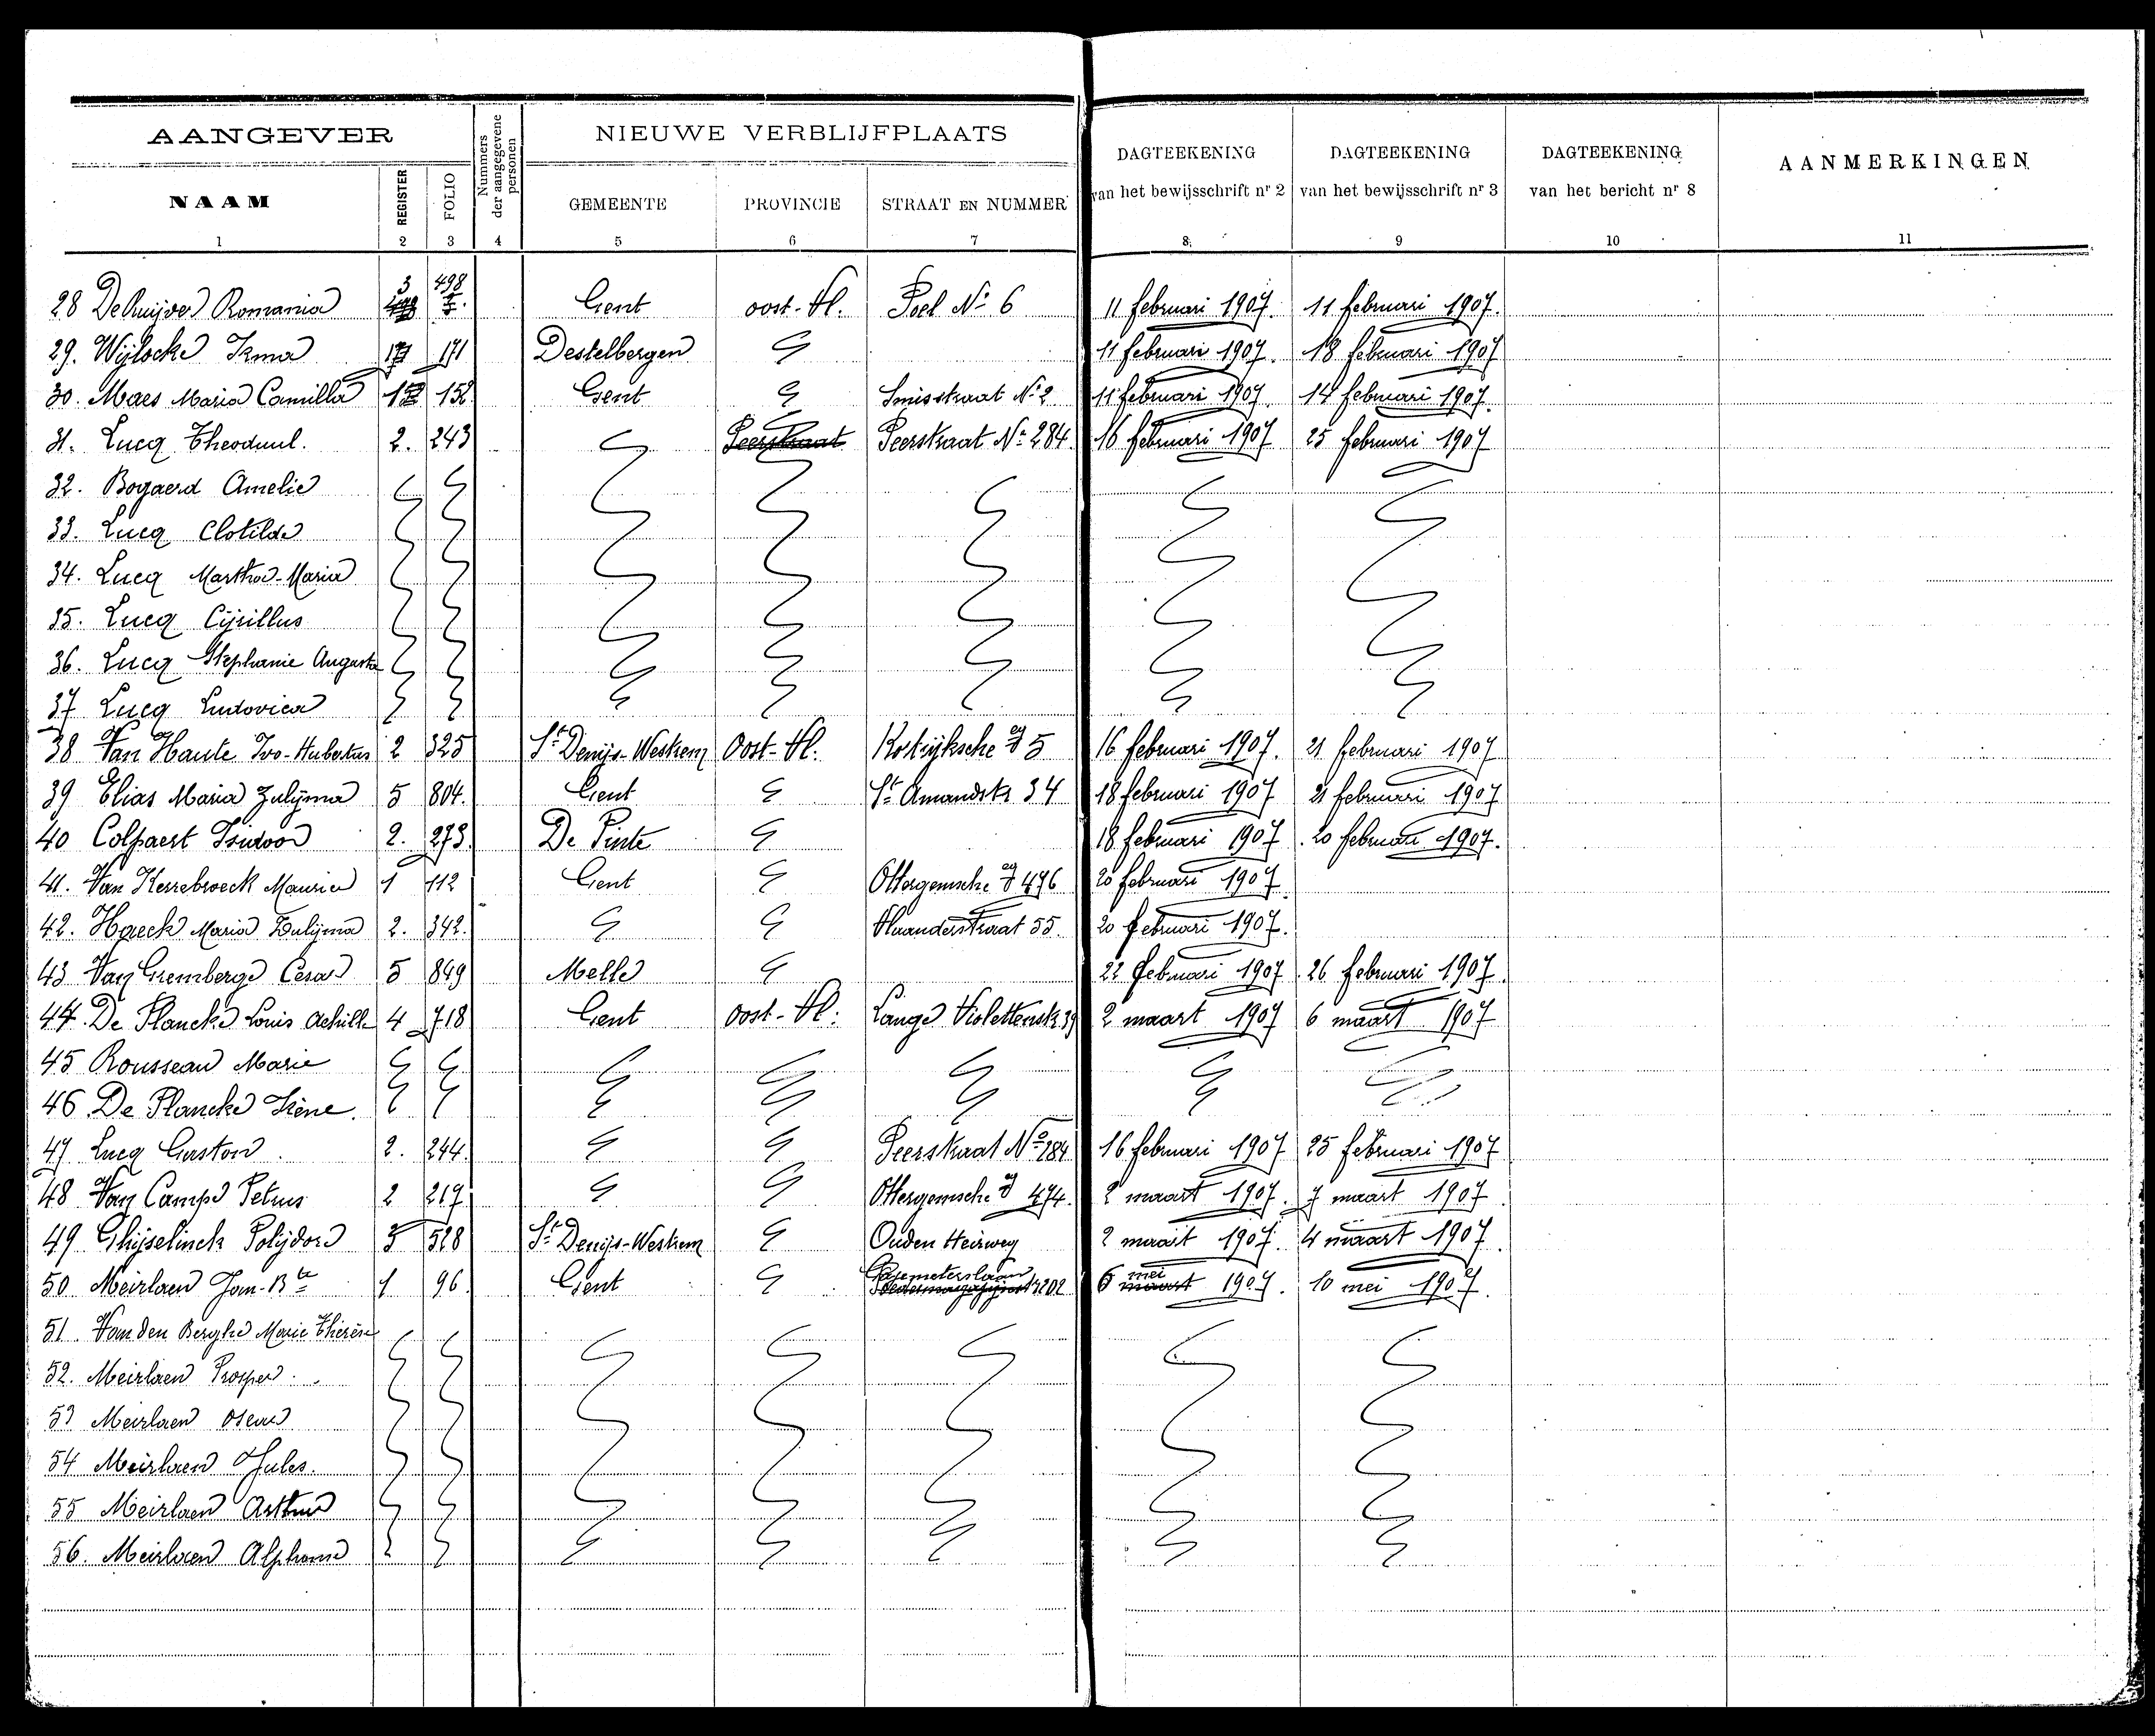 AANGEVER
Nummers der aangegevene personen
NIEUWE VERBLIJFPLAATS
DAGTEEKENING van het bewijsschrift nr 2
DAGTEEKENING van het bewijsschrift nr 3
DAGTEEKENING van het bericht nr 8
AANMERKINGEN
NAAM REGISTER FOLIO GEMEENTE PROVINCIE STRAAT EN NUMMER
1 2 3 4 5 6 7 8 9 10 11
28 De Ruijver Romania 3 498 Gent oost-Vl. Poel No 6 11 februari 1907. 11 februari 1907.
29. Wijlocke Irma 171 Destelbergen 11 februari 1907. 18 februari 1907
30. Maes Maria Camilla 152 Gent Smisstraat No 2 11 februari 1907. 14 februari 1907.
31. Lucq Theoduul. 2. 243 Peerstraat Peerstraat No 284 16 februari 1907 25 februari 1907
32. Bogaerd Amelie
33. Lucq Clotilde
34. Lucq Martha-Maria
35. Lucq Cijrillus
36. Lucq Stephanie Augusta
37 Lucq Ludovica
38 Van Haute Ivo-Hubertus 2 325 St Denijs-Westrem Oost-Vl. Kortrijksche 5 16 februari 1907. 21 februari 1907
39 Elias Maria Zulijma 5 804. Gent St Amandstr 34 18 februari 1907 21 februari 1907
40 Colpaert Isidoor 2. 273. De Pinte 18 februari 1907 20 februari 1907.
41. Van Kerrebroeck Maurice 1 112 Gent Ottergemsche 476 20 februari 1907
42. Haeck Maria Zulijma 2. 342. Vlaanderstraat 55. 20 februari 1907.
43 Van Gremberge Cesar 5 849 Melle 22 februari 1907 26 februari 1907.
44. De Plancke Louis Achille 4 718 Gent oost-Vl. Lange Violettenstr 39 2 maart 1907 6 maart 1907
45 Rousseau Marie
46 De Plancke Irène.
47. Lucq Gaston 2. 244. Peerstraat No 284 16 februari 1907 25 februari 1907
48 Van Campe Petrus 2 217 Ottergemsche 474. 2 maart 1907. 7 maart 1907.
49 Ghijselinck Polijdore 3 528 St Denijs-Westrem Ouden Heirweg 2 maart 1907. 4 maart 1907.
50 Meirlaen Jan-Bte 1 96 Gent Gasmeterslaan 202 6 maart mei 1907. 10 mei 1907.
51. Van den Berghe Marie Thérèse
52. Meirlaen Prosper.
53 Meirlaen Oscar
54 Meirlaen Jules.
55 Meirlaen Arthur
56. Meirlaen Alphonse